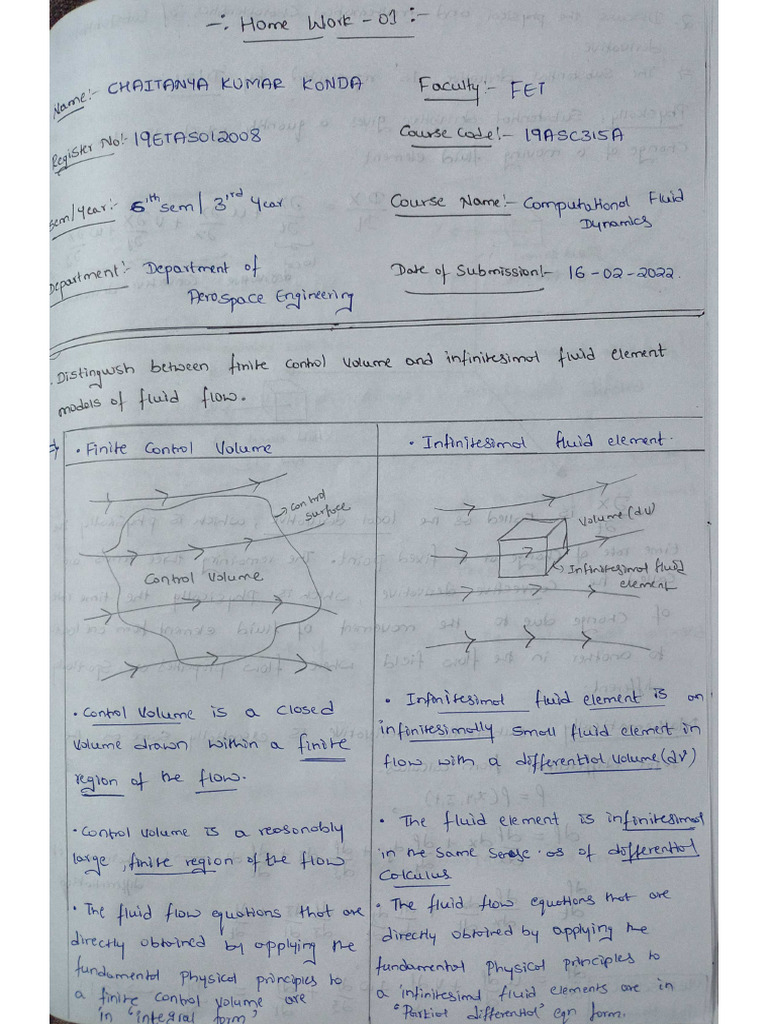 -: Home Work - 01 :-
Name:- CHAITANYA KUMAR KONDA
Faculty:- FET
Register No:- 19ETAS012008
Course Code:- 19ASC315A
Sem/Year:- 6th Sem / 3rd Year
Course Name:- Computational Fluid
Dynamics
Department:- Department of
Aerospace Engineering
Date of Submission:- 16-02-2022.
Distinguish between finite control volume and infinitesimal fluid element
models of fluid flow.
⇒
• Finite Control Volume
control
surface
Control Volume
• Control Volume is a closed
volume drawn within a finite
region of the flow.
• Control volume is a reasonably
large, finite region of the flow
• The fluid flow equations that are
directly obtained by applying the
fundamental physical principles to
a finite control volume are
in "integral form"
• Infinitesimal fluid element.
Volume (dV)
Infinitesimal fluid
element
• Infinitesimal fluid element is an
infinitesimally small fluid element in
flow with a differential volume (dV)
• The fluid element is infinitesimal
in the same sense as of differential
calculus
• The fluid flow equations that are
directly obtained by applying the
fundamental physical principles to
a infinitesimal fluid elements are in
"Partial differential" eqn form.